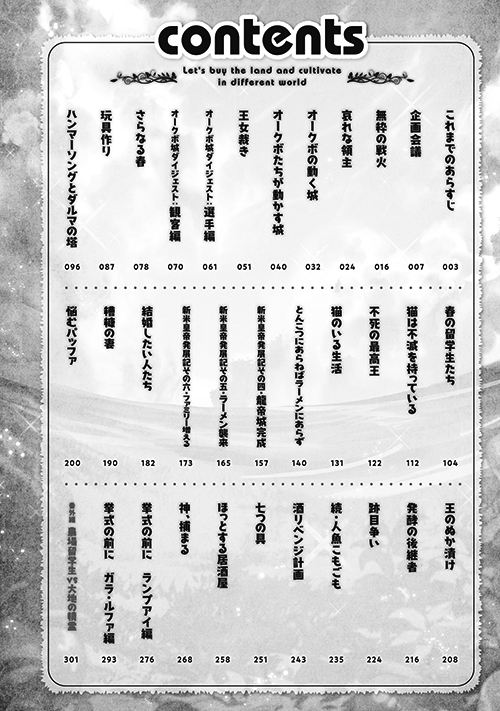 contents
Let's buy the land and cultivate
in different world
これまでのあらすじ 003
企画会議 007
無粋の戦火 016
哀れな領主 024
オークボの動く城 032
オークボたちが動かす城 040
王女裁き 051
オークボ城ダイジェスト:選手編 061
オークボ城ダイジェスト:観客編 070
さらなる春 078
玩具作り 087
ハンマーソングとダルマの塔 096
春の留学生たち 104
猫は不滅を持っている 112
不死の最高王 122
猫のいる生活 131
とんこつにあらねばラーメンにあらず 140
新米皇帝発展記その四・龍帝城完成 157
新米皇帝発展記その五・ラーメン襲来 165
新米皇帝発展記その六・ファミリー増える 173
結婚したい人たち 182
糟糠の妻 190
悩むバッファ 200
王のぬか漬け 208
発酵の後継者 216
跡目争い 224
続・人魚こもごも 235
酒リベンジ計画 243
七つの具 251
ほっとする居酒屋 258
神、捕まる 268
挙式の前に ランプアイ編 276
挙式の前に ガラ・ルファ編 293
番外編 農場留学生vs大地の精霊 301